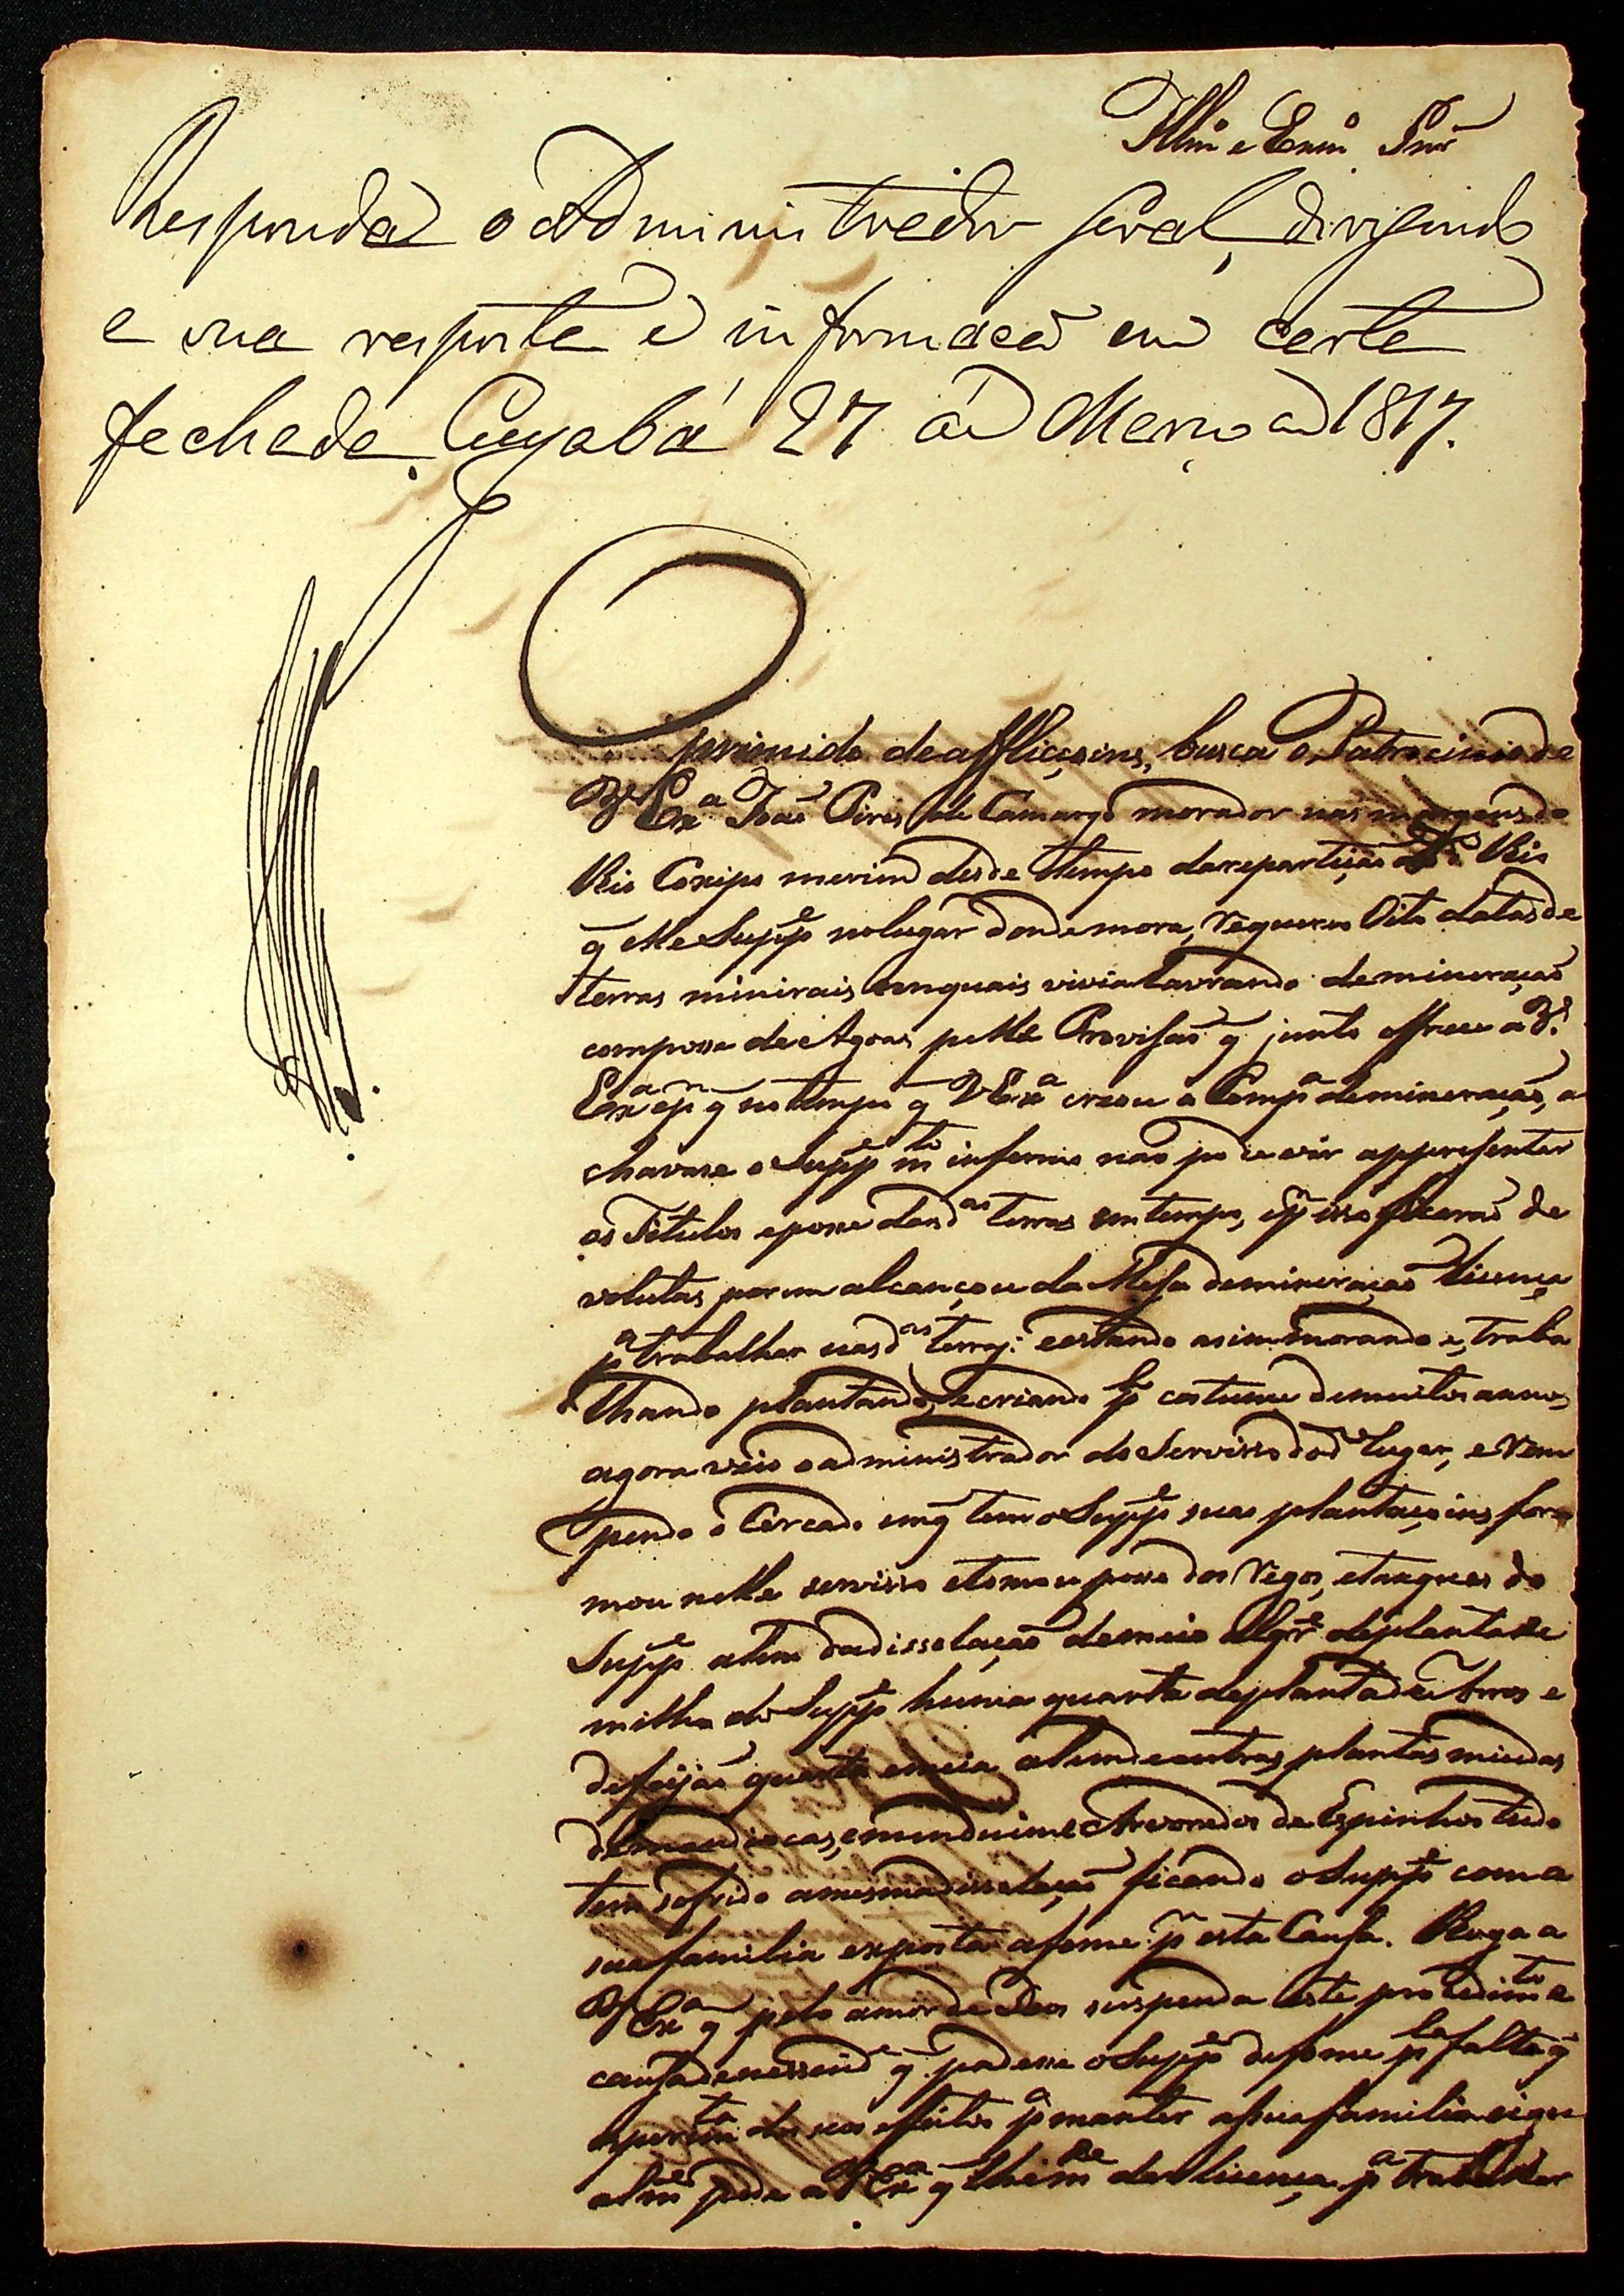 Illmo e Exmo Snr
Responda o Administrador Geral, dirigindo
a sua resposta e informaçaõ em carta
fechada. Cuyabá 27 de Março de 1817.
Oprimido de afflicçoins, busca o Patrocinio de
V. Exa Joaõ Pires de Camargo morador nas margens do
Rio Coxipo merim desde o tempo da repartiçaõ do do Rio
q elle Suppe no lugar donde mora, requereu Oito datas de
terras minirais em quais vivia lavrando de mineraçaõ
com posse de Agoas pella Provisaõ q junto offrece a V.
Exa epr q no tempo q V Exa creou a Compa de mineraçaõ, a
chavase o Suppe mto infermo naõ pode vir appresentar
os Titulos e posse das das terras em tempo, e pr isso ficaraõ de
volutas, porem alcançou da Mesa de mineraçaõ licença
pa trabalhar nas das terras: e estando asim morando e, traba
lhando plantando, e criando pr costume de muitos annos,
agora veio o administrador do Servisso do do lugar, e Rom
pendo o Cercado em q tem o Suppe suas plantaçoins for
mou nelle servisso e tomou posse dos Regos, e tanques do
Suppe alem da dissolaçaõ de meio Alqre de planta de
milho do Suppe huma quarta de planta de Arros e
de feijaõ quarta e meia alem de outras plantas miudas
de mandiocas, e munduim e Arvoredos de Espinhos tudo
tem sofrido a mesma dissolaçaõ ficando o Suppe com a
sua familia exposta a fome pr esta Causa. Roga a
V Exa q pelo amor de Deos suspenda este procedimto e
causa de nessecide q padesse o Suppe de fome pla falta q
aperimta dos seus effeitos pa manter a sua familia e igu
alme pede a V Exa q lhe mde dar licença pa trabalhar